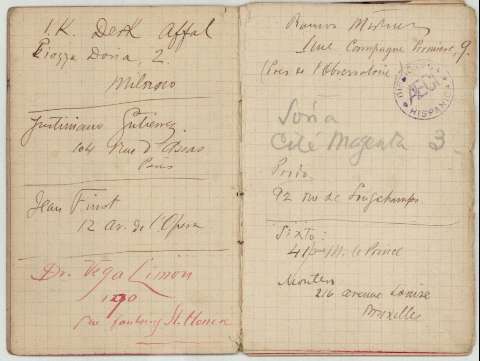 I. K. Desk Affal
Piazza Doria, 2.
Milano
Justiniano Gutiérrez.
104 Rue d'Assas
Paris
Jean Finot
12 Av. de l'Opera
Dr. Vega Limon
190
rue Faubourg St. Honoré
Ramon
9 rue Campagne Première, 9.
(Près de l'Observatoire)
HISPANI
Soria
Cité Magenta 3
Paris
92 rue de Longchamps
Sixto:
41 M. le Prince
216 avenue Louise
Bruxelles